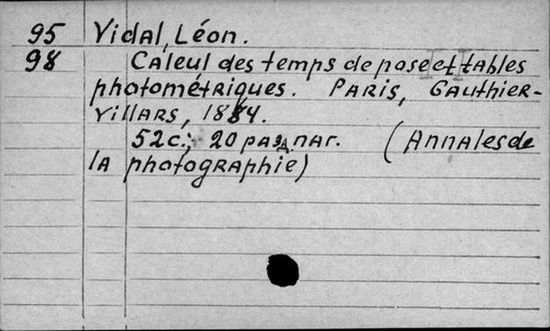 95 Vidal, Léon.
98 Calcul des temps de pose et tables
photométriques. Paris, Gauthier-
Villars, 1884.
52 с.; 20 разд. паг. (Annales de
la photographie)